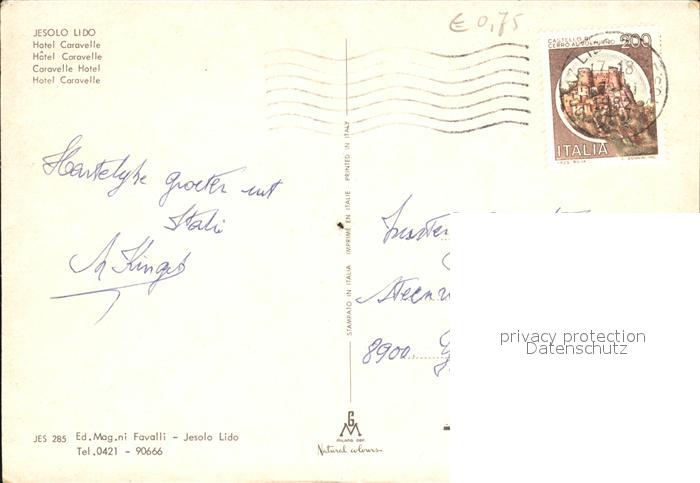 JESOLO LIDO
Hotel Caravelle
Hôtel Caravelle
Caravelle Hotel
Hotel Caravelle
€ 0,75
CASTELLO DI
CERRO AL VOLTURNO 200
17-18
ITALIA
Hartelyke groeten uit
Italie
STAMPATO IN ITALIA IMPRIME EN ITALIE PRINTED IN ITALY
8900
privacy protection
Datenschutz
JES 285 Ed.Mag.ni Favalli - Jesolo Lido
Tel.0421 - 90666
GM
MILANO
Natural colours